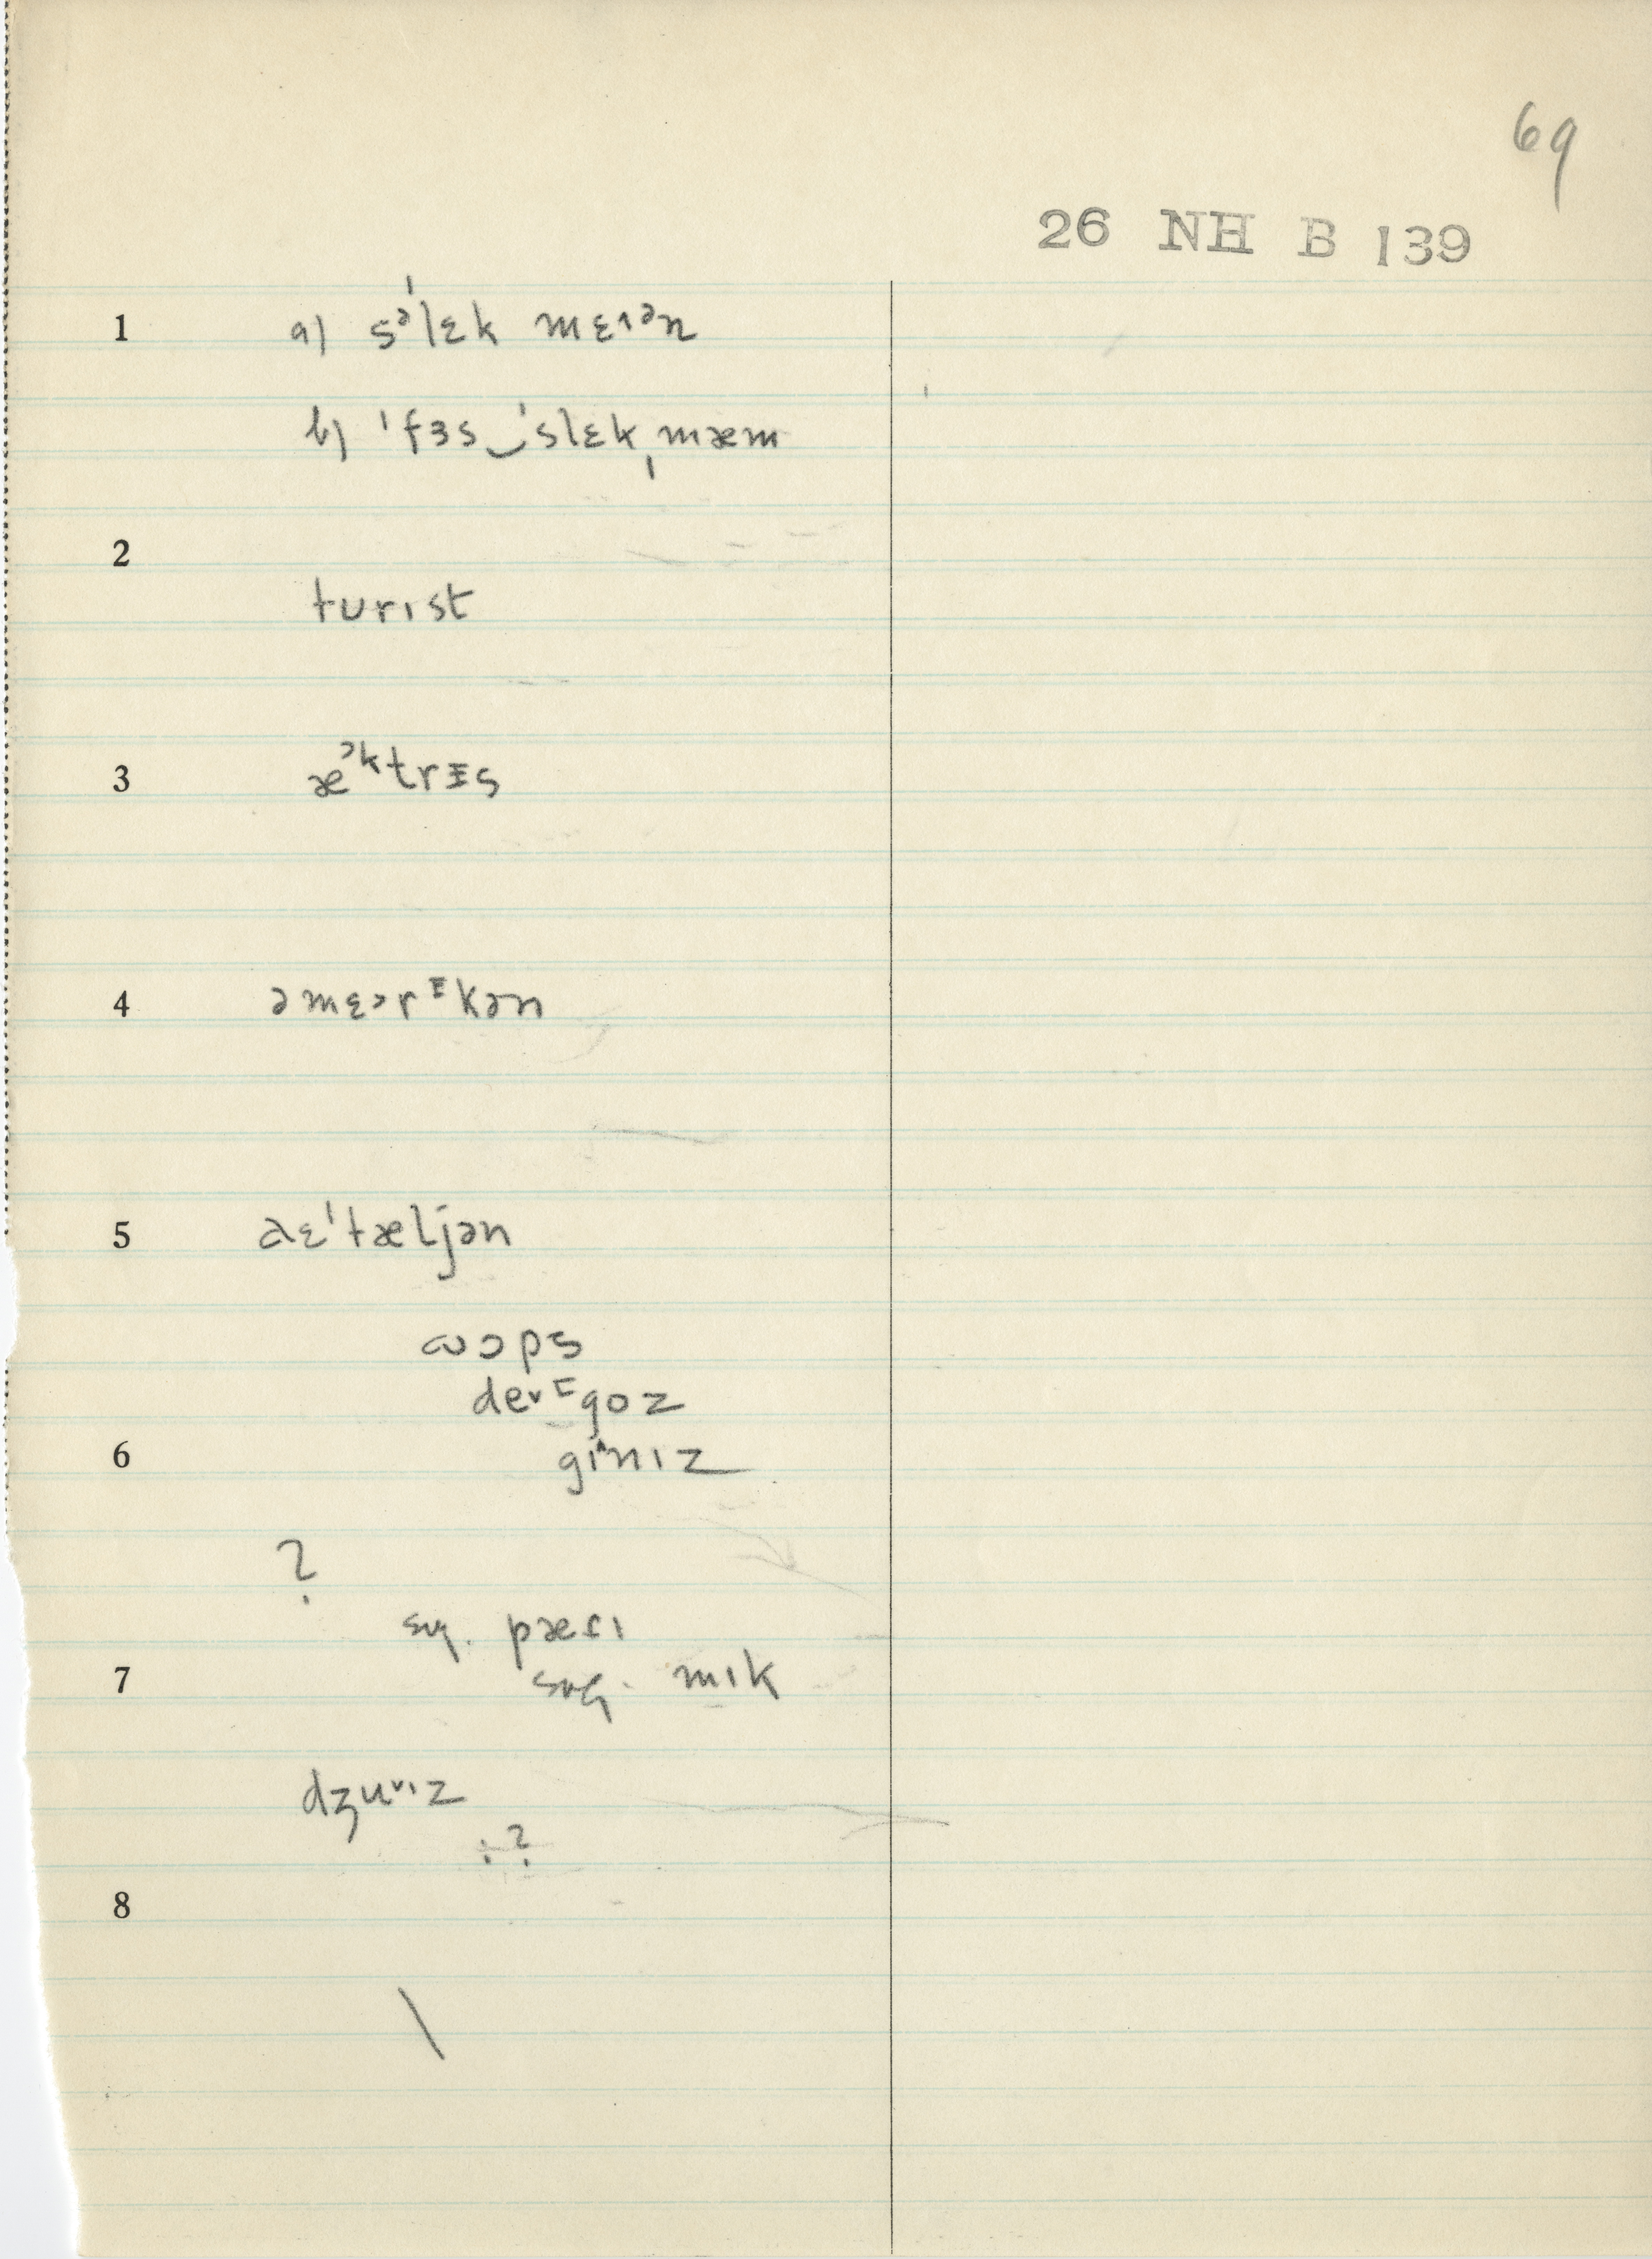 69
26 NH B 139
1 a) sᵊ'lɛk mɛɪᵊn
b) 'fɜs‿'slɛk ˌmæm
2
turɪst
3 æᵊᵏtrɪs
4 əmɛər ɪkən
5 'tæljən
wops
degoz
6 gɪnɪz
?
sug. pæsɪ
7 sug. mɪk
dʒuɪz
: ?
8
\